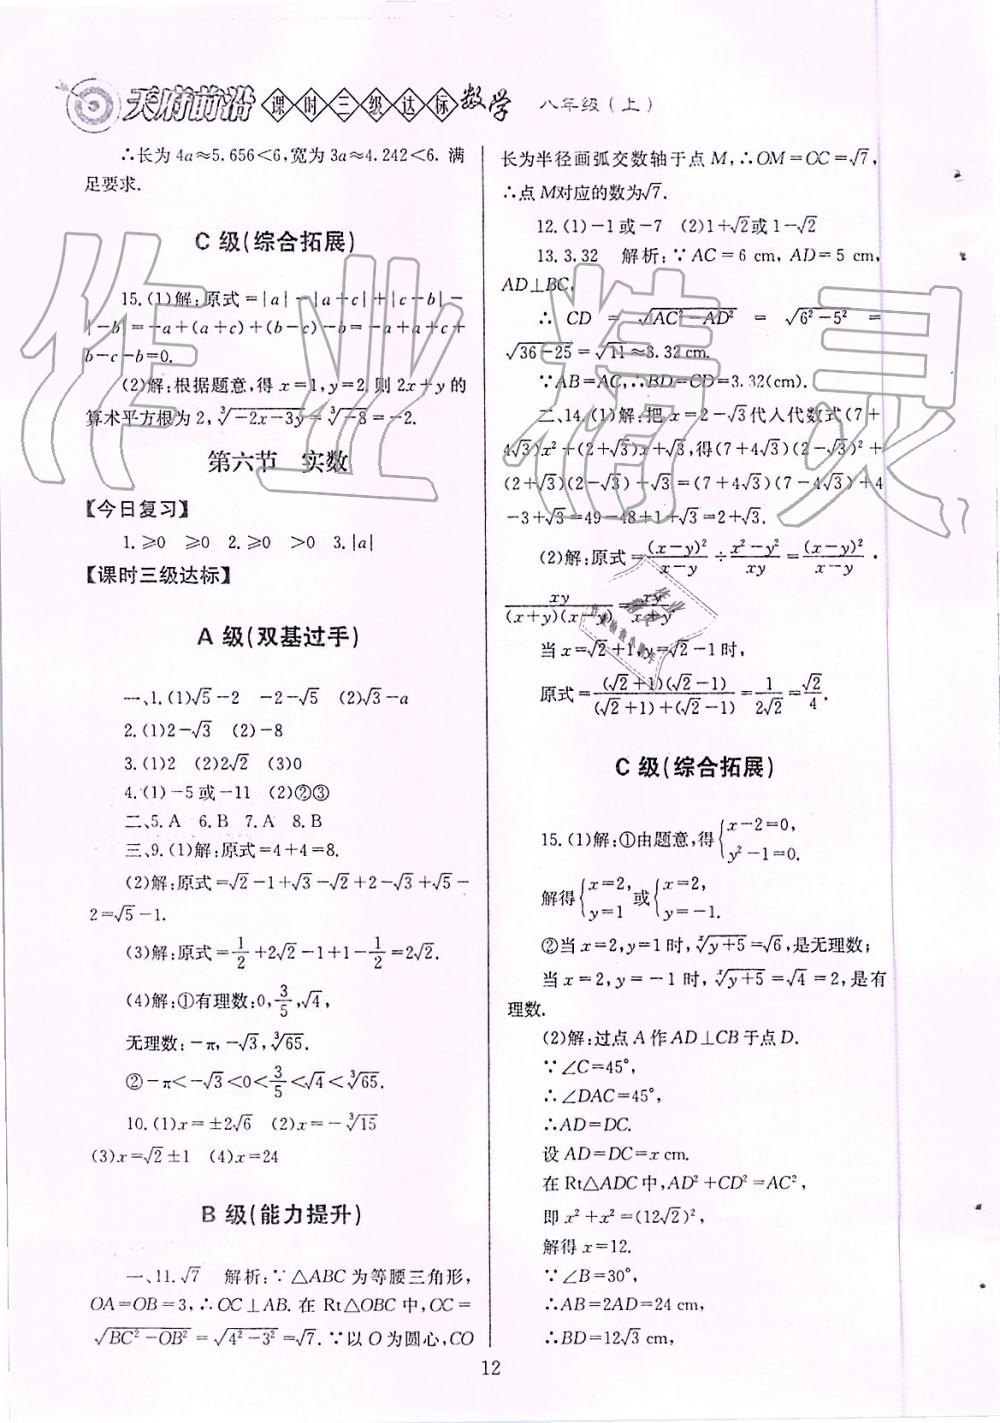 天府前沿 课时三级达标 数学 八年级（上）
∴长为 4a≈5.656＜6,宽为 3a≈4.242＜6. 满
足要求.
C 级(综合拓展)
15.(1)解:原式=|a|-|a+c|+|c-b|-
|-b|=-a+(a+c)+(b-c)-b=-a+a+c+
b-c-b=0.
(2)解:根据题意,得 x=1,y=2,则 2x+y 的
算术平方根为 2,∛(-2x-3y)=∛(-8)=-2.
第六节 实数
【今日复习】
1.≥0 ≥0 2.≥0 >0 3.|a|
【课时三级达标】
A 级(双基过手)
一、1.(1)√5-2 -2-√5 (2)√3-a
2.(1)2-√3 (2)-8
3.(1)2 (2)2√2 (3)0
4.(1)-5或-11 (2)②③
二、5.A 6.B 7.A 8.B
三、9.(1)解:原式=4+4=8.
(2)解:原式=√2-1+√3-√2+2-√3+√5-
2=√5-1.
(3)解:原式=1/2+2√2-1+1-1/2=2√2.
(4)解:①有理数:0,3/5,√4,
无理数:-π,-√3,∛65.
②-π<-√3<0<3/5<√4<∛65.
10.(1)x=±2√6 (2)x=-∛15
(3)x=√2±1 (4)x=24
B 级(能力提升)
一、11.√7 解析:∵△ABC 为等腰三角形,
OA=OB=3,∴OC⊥AB.在 Rt△OBC 中,OC=
√(BC²-OB²)=√(4²-3²)=√7.∵以 O 为圆心,CO
长为半径画弧交数轴于点 M,∴OM=OC=√7,
∴点 M对应的数为√7.
12.(1)-1或-7 (2)1+√2或1-√2
13.3.32 解析:∵AC=6 cm,AD=5 cm,
AD⊥BC,
∴ CD = √(AC²-AD²) = √(6²-5²) =
√(36-25)=√11≈3.32 cm.
∵AB=AC,∴BD=CD=3.32(cm).
二、14.(1)解:把 x=2-√3代人代数式(7+
4√3)x²+(2+√3)x+√3,得(7+4√3)(2-√3)²+
(2+√3)(2-√3)+√3=(7+4√3)(7-4√3)+4
-3+√3=49-48+1+√3=2+√3.
(2)解:原式=(x-y)²/(x-y)÷(x²-y²)/xy=(x-y)²/(x-y)·
xy/((x+y)(x-y))=xy/(x+y).
当 x=√2+1,y=√2-1时,
原式=(√2+1)(√2-1)/((√2+1)+(√2-1))=1/(2√2)=√2/4.
C 级(综合拓展)
15.(1)解:①由题意,得{x-2=0,
y²-1=0.
解得{x=2,y=1或{x=2,y=-1.
②当 x=2,y=1时,ˣ√(y+5)=√6,是无理数;
当 x=2,y=-1 时,ˣ√(y+5)=√4=2,是有
理数.
(2)解:过点 A 作 AD⊥CB于点 D.
∵∠C=45°,
∴∠DAC=45°,
∴AD=DC.
设 AD=DC=x cm.
在 Rt△ADC 中,AD²+CD²=AC²,
即 x²+x²=(12√2)²,
解得 x=12.
∵∠B=30°,
∴AB=2AD=24 cm,
∴BD=12√3 cm,
12
作业精灵